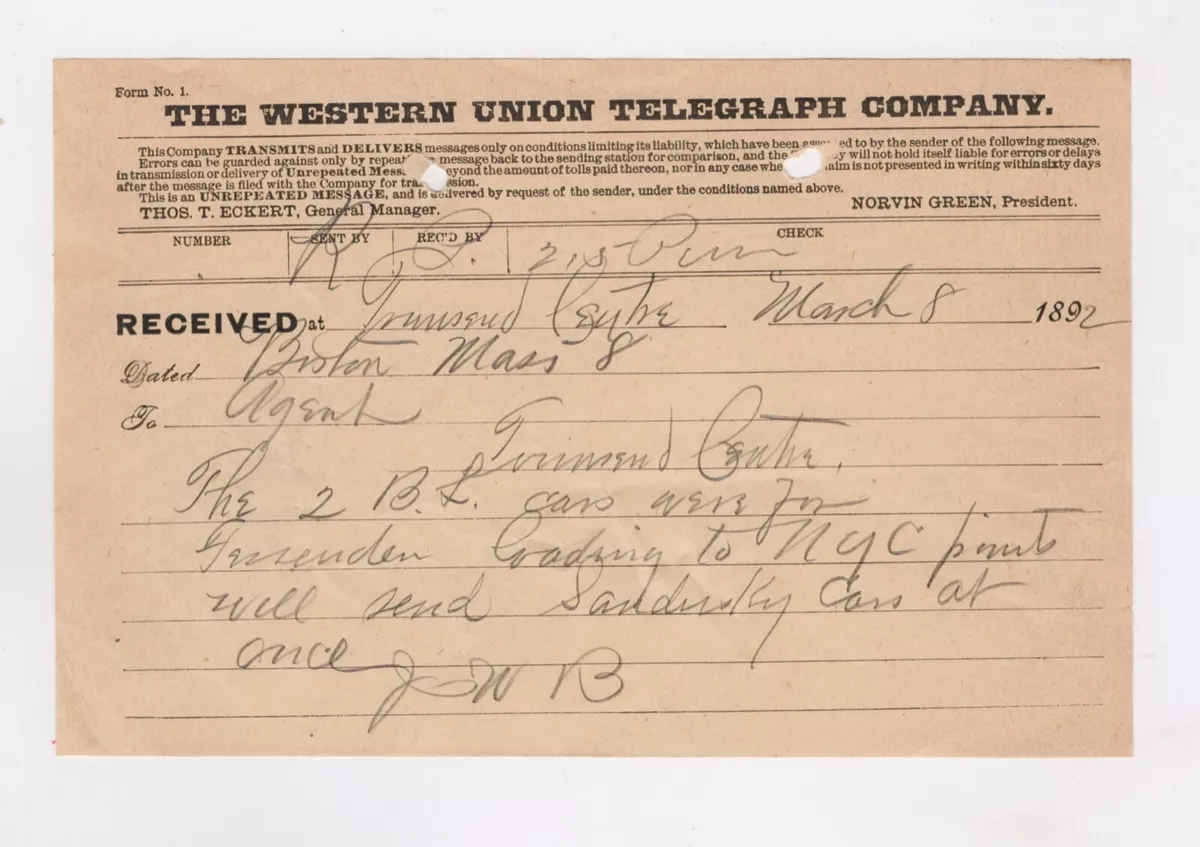 Form No. 1.
THE WESTERN UNION TELEGRAPH COMPANY.
This Company TRANSMITS and DELIVERS messages only on conditions limiting its liability, which have been ed to by the sender of the following message.
Errors can be guarded against only by repeat message back to the sending station for comparison, and the y will not hold itself liable for errors or delays
in transmission or delivery of Unrepeated Mess eyond the amount of tolls paid thereon, nor in any case whe aim is not presented in writing within sixty days
after the message is filed with the Company for tra ssion.
This is an UNREPEATED MESSAGE, and is delivered by request of the sender, under the conditions named above.
THOS. T. ECKERT, General Manager. NORVIN GREEN, President.
NUMBER SENT BY REC'D BY CHECK
RECEIVED at Townsend Centre March 8 1892
Dated Boston Mass 8
To Agent
Townsend Centre.
The 2 B.L. cars were for
Fessenden loading to NYC points
will send Sandusky Cars at
once
J W B